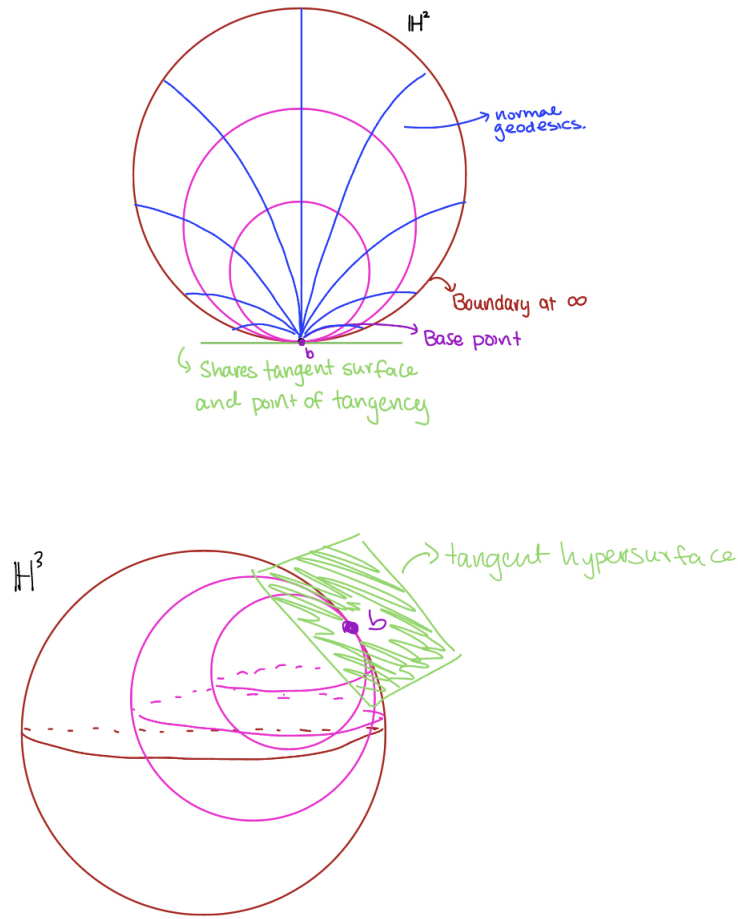 ℍ²
normal
geodesics.
Boundary at ∞
Base point
b
Shares tangent surface
and point of tangency
ℍ³
tangent hypersurface
b